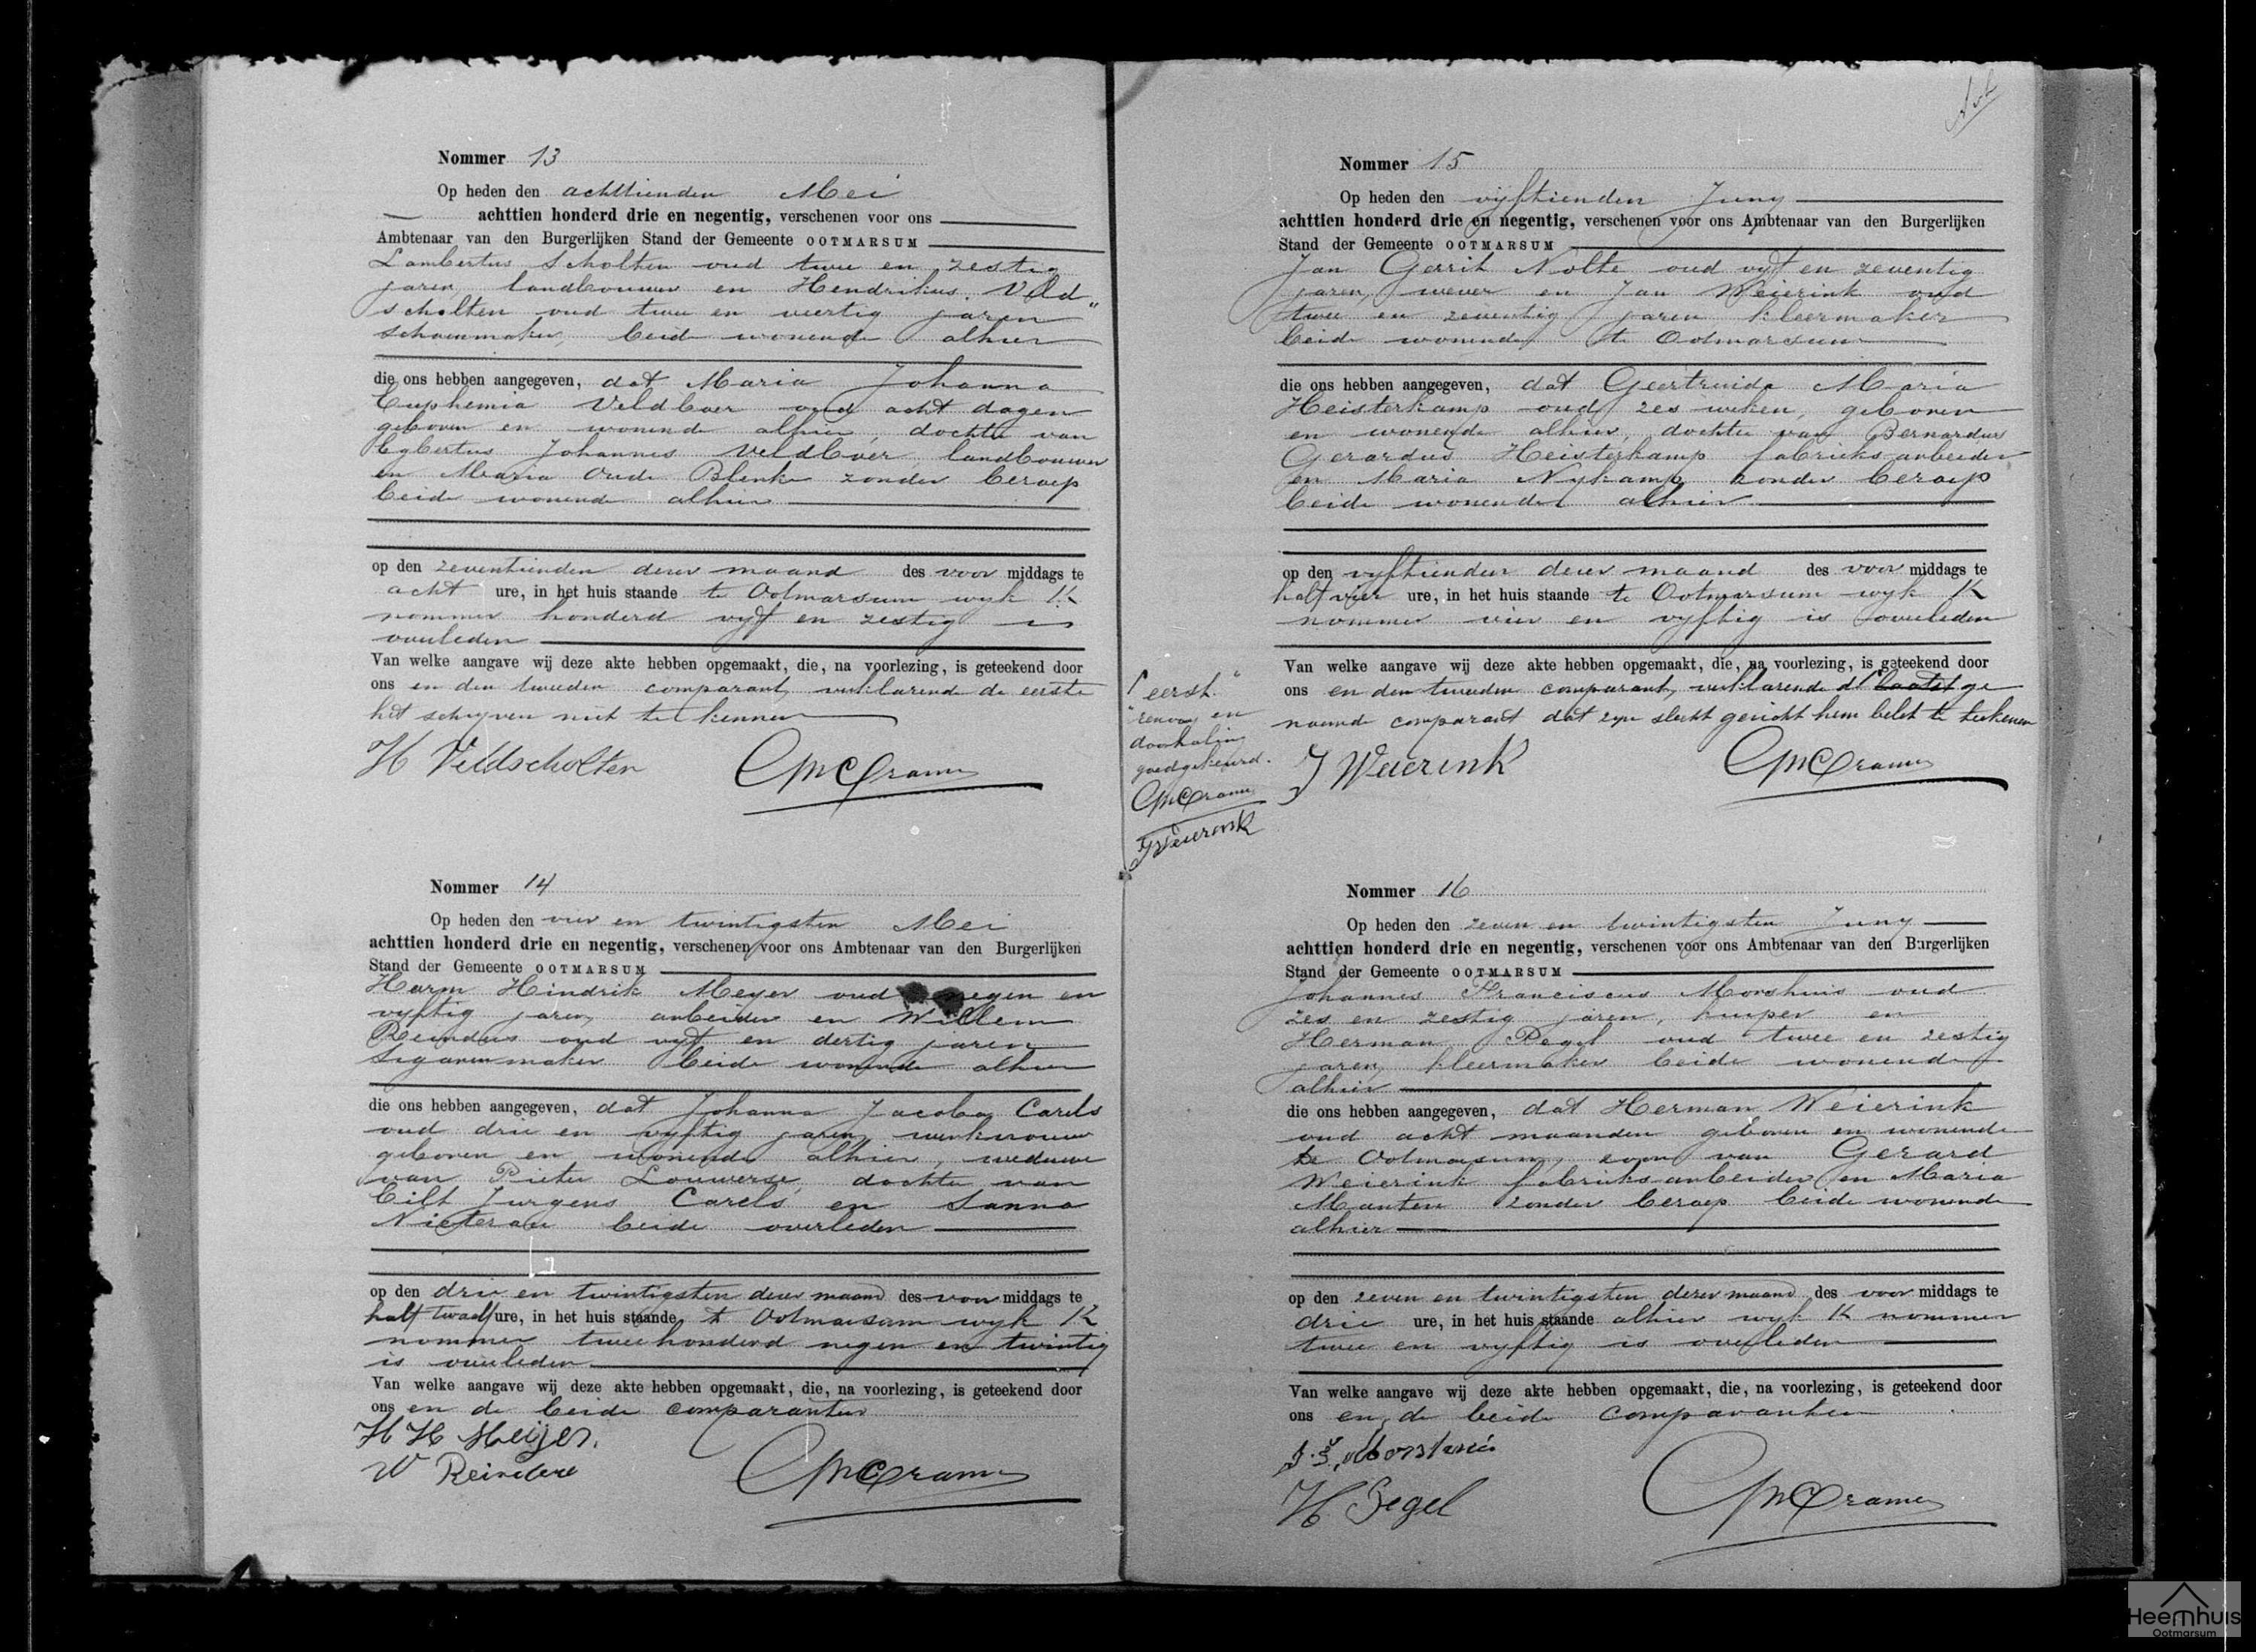 Nommer 13
Op heden den achttienden Mei
achttien honderd drie en negentig, verschenen voor ons
Ambtenaar van den Burgerlijken Stand der Gemeente OOTMARSUM
Lambertus Scholten oud twee en zestig
jaren landbouwer en Hendrikus Veld„
scholten oud twee en veertig jaren
schoenmaker, beide wonende alhier
die ons hebben aangegeven, dat Maria Johanna
Euphemia Veldboer oud acht dagen
geboren en wonende alhier, dochter van
Egbertus Johannes Veldboer, landbouwer
en Maria Oude Blenke zonder beroep
beide wonende alhier
op den zeventienden dezer maand des voor middags te
acht ure, in het huis staande te Ootmarsum wyk K
nommer honderd vyf en zestig is
overleden
Van welke aangave wij deze akte hebben opgemaakt, die, na voorlezing, is geteekend door
ons en den tweeden comparant, verklarende de eerste
het schryven niet te kennen
H Veldscholten
Nommer 14
Op heden den vier en twintigsten Mei
achttien honderd drie en negentig, verschenen voor ons Ambtenaar van den Burgerlijken
Stand der Gemeente OOTMARSUM
Harm Hindrik Meyer oud negen en
vyftig jaren, arbeider en Willem
Reinders oud vyf en dertig jaren
sigarenmaker beide wonende alhier
die ons hebben aangegeven, dat Johanna Jacoba Carels
oud drie en vyftig jaren, werkvrouw
geboren en wonende alhier, weduwe
van Pieter Louwerse, dochter van
Eilt Jurgens Carels en Sanna
beide overleden
op den drie en twintigsten dezer maand des voor middags te
half twaalf ure, in het huis staande te Ootmarsum wyk K
nommer tweehonderd negen en twintig
is overleden
Van welke aangave wij deze akte hebben opgemaakt, die, na voorlezing, is geteekend door
ons en de beide comparanten
H H Meijer.
W Reinders
Nommer 15
Op heden den vyftienden Juny
achttien honderd drie en negentig, verschenen voor ons Ambtenaar van den Burgerlijken
Stand der Gemeente OOTMARSUM
Jan Gerrit Nolte oud vyf en zeventig
jaren, wever en Jan Weierink oud
twee en zeventig jaren kleermaker
beide wonende te Ootmarsum
die ons hebben aangegeven, dat Geertruida Maria
Heisterkamp oud zes weken, geboren
en wonende alhier, dochter van Bernardus
Gerardus Heisterkamp fabrieksarbeider
en Maria Nykamp zonder beroep
beide wonende alhier
op den vyftienden dezer maand des voor middags te
half vier ure, in het huis staande te Ootmarsum wyk K
nommer vier en vyftig is overleden
Van welke aangave wij deze akte hebben opgemaakt, die, na voorlezing, is geteekend door
ons en den tweeden comparant, verklarende de laatst ge
noemde comparant dat zyn slecht gezicht hem belet te teekenen
"eerst"
renvooy en
doorhaling
goedgekeurd.
J Weierink
J Weierink
Nommer 16
Op heden den zeven en twintigsten Juny
achttien honderd drie en negentig, verschenen voor ons Ambtenaar van den Burgerlijken
Stand der Gemeente OOTMARSUM
Johannes Franciscus Morshuis oud
zes en zestig jaren, kuiper en
Herman Pegel oud twee en zestig
jaren, kleermaker beide wonende
alhier
die ons hebben aangegeven, dat Herman Weierink
oud acht maanden geboren en wonende
te Ootmarsum, zoon van Gerard
Weierink fabrieksarbeider en Maria
Manten zonder beroep beide wonende
alhier
op den zeven en twintigsten dezer maand des voor middags te
drie ure, in het huis staande alhier wyk K nommer
twee en vyftig is overleden
Van welke aangave wij deze akte hebben opgemaakt, die, na voorlezing, is geteekend door
ons en de beide comparanten
J. F. Morshuis
H Pegel
Heemhuis
Ootmarsum